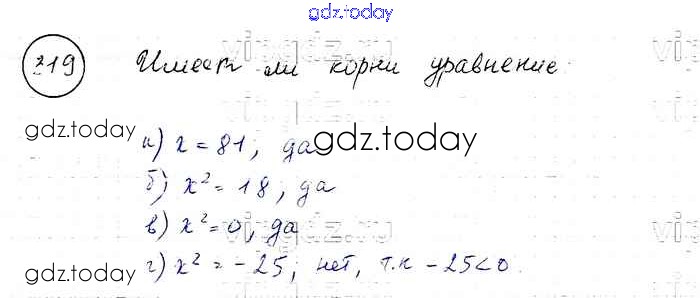 gdz.today
319 Имеет ли корни уравнение:
gdz.today
gdz.today
а) x = 81, да
б) x² = 18, да
в) x² = 0, да
г) x² = -25, нет, т.к -25<0.
gdz.today
gdz.today